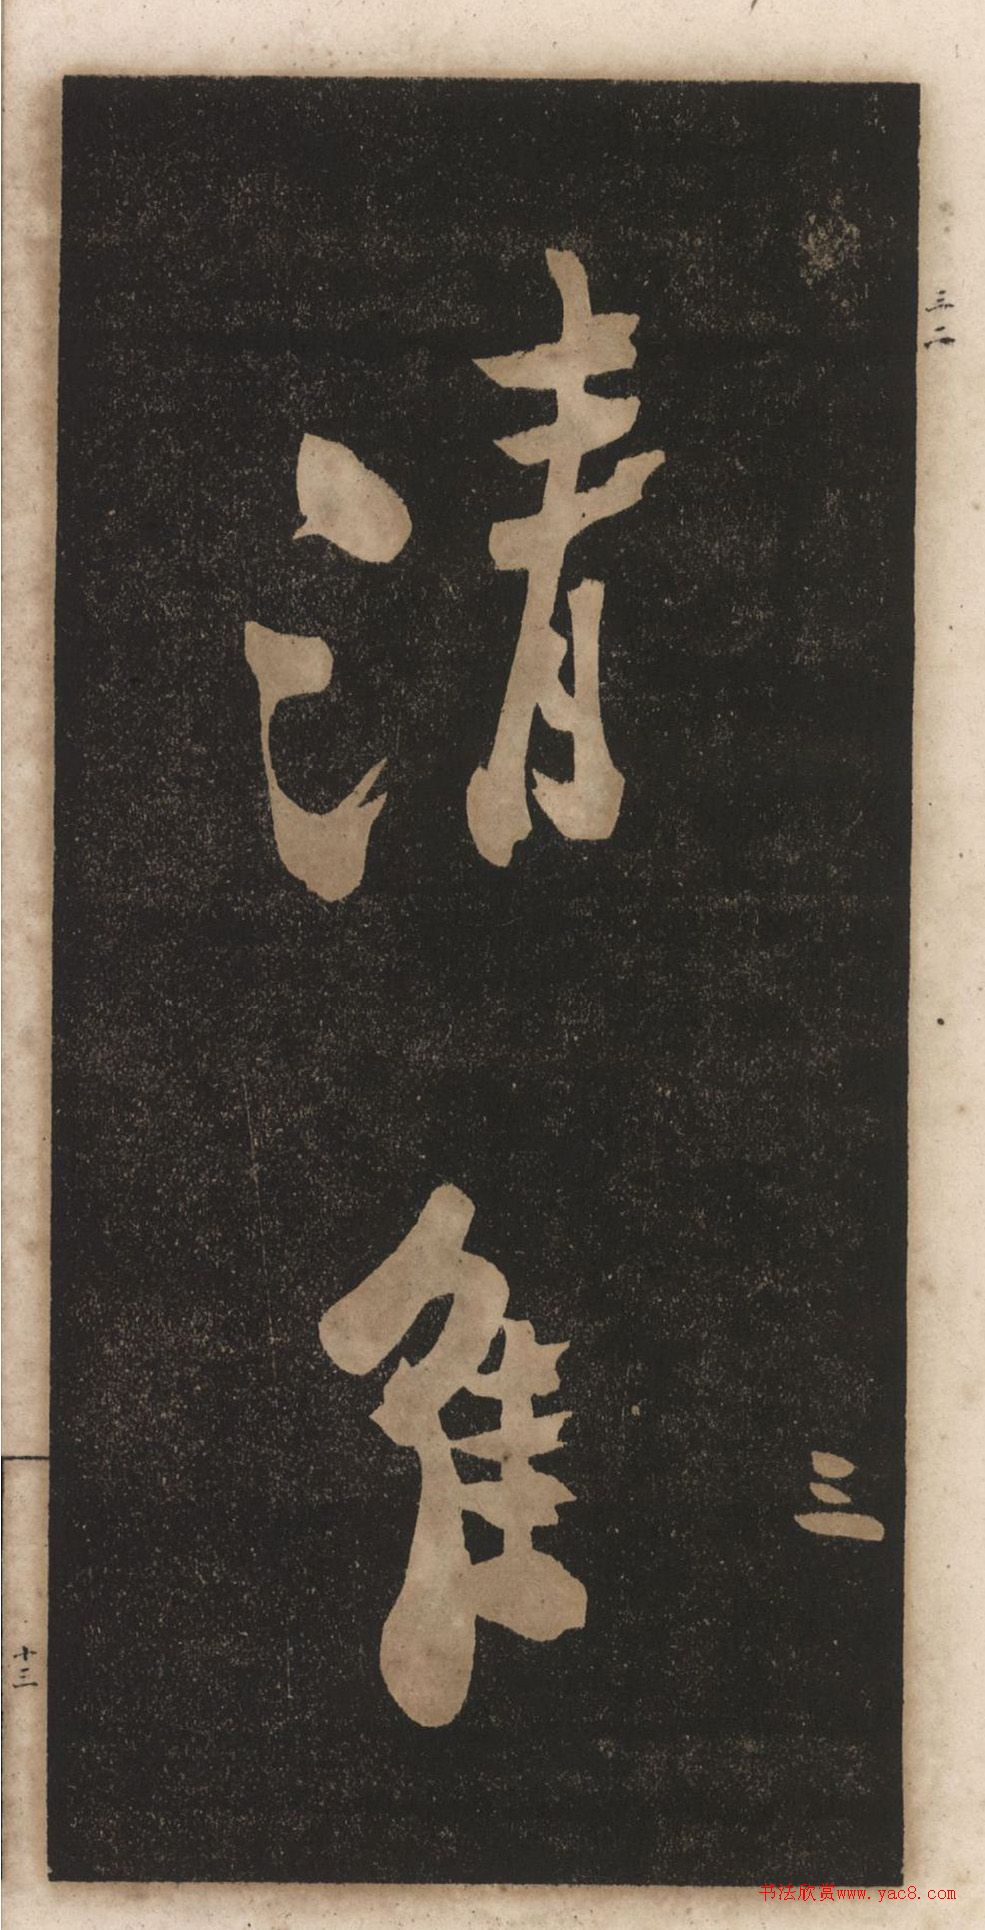 三二
三
清
隹
十三
书法欣赏www.yac8.com